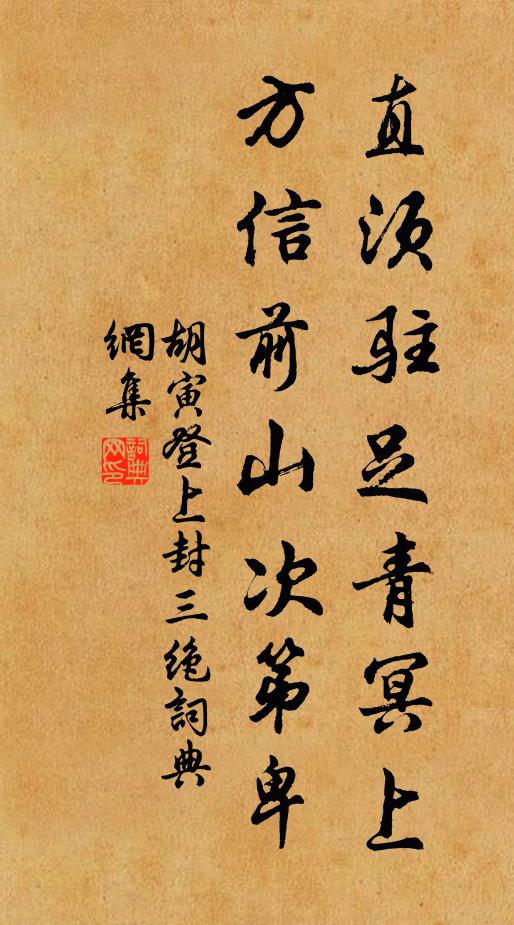 直須駐足青冥上
方信前山次第卑
胡寅登上封三絶詞典
網集
詞典網印